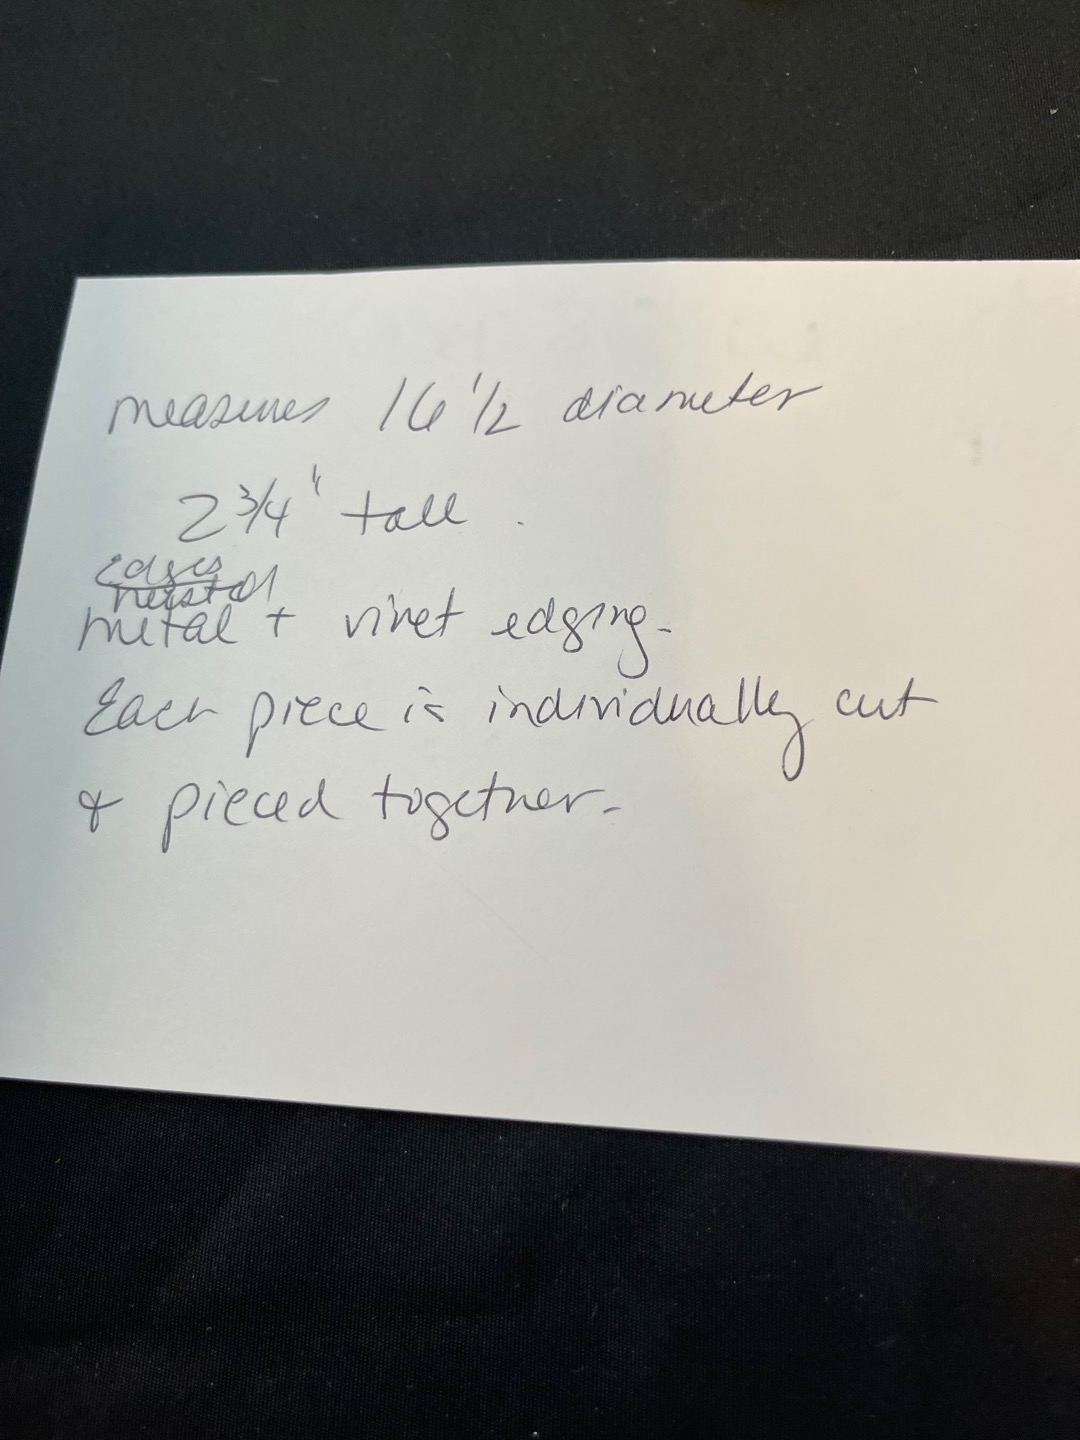 measures 16 1/2 diameter
2 3/4" tall.
edges
metal + rivet edging.
Each piece is individually cut
& pieced together.